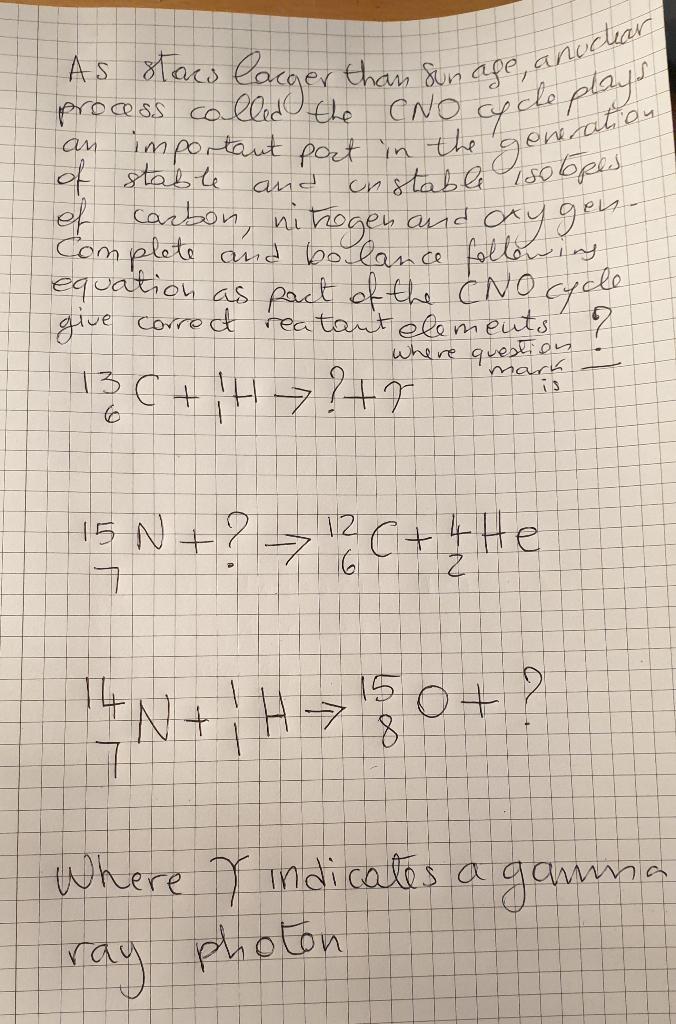 As stars larger than Sun age, a nuclear
process called the CNO cycle plays
an important part in the generation
of stable and unstable isotopes
of carbon, nitrogen and oxygen.
Complete and balance following
equation as part of the CNO cycle
give correct reatant elements
where question mark is ?
¹³₆C + ¹₁H → ? + γ
¹⁵₇N + ? → ¹²₆C + ⁴₂He
¹⁴₇N + ¹₁H → ¹⁵₈O + ?
Where γ indicates a gamma
ray photon